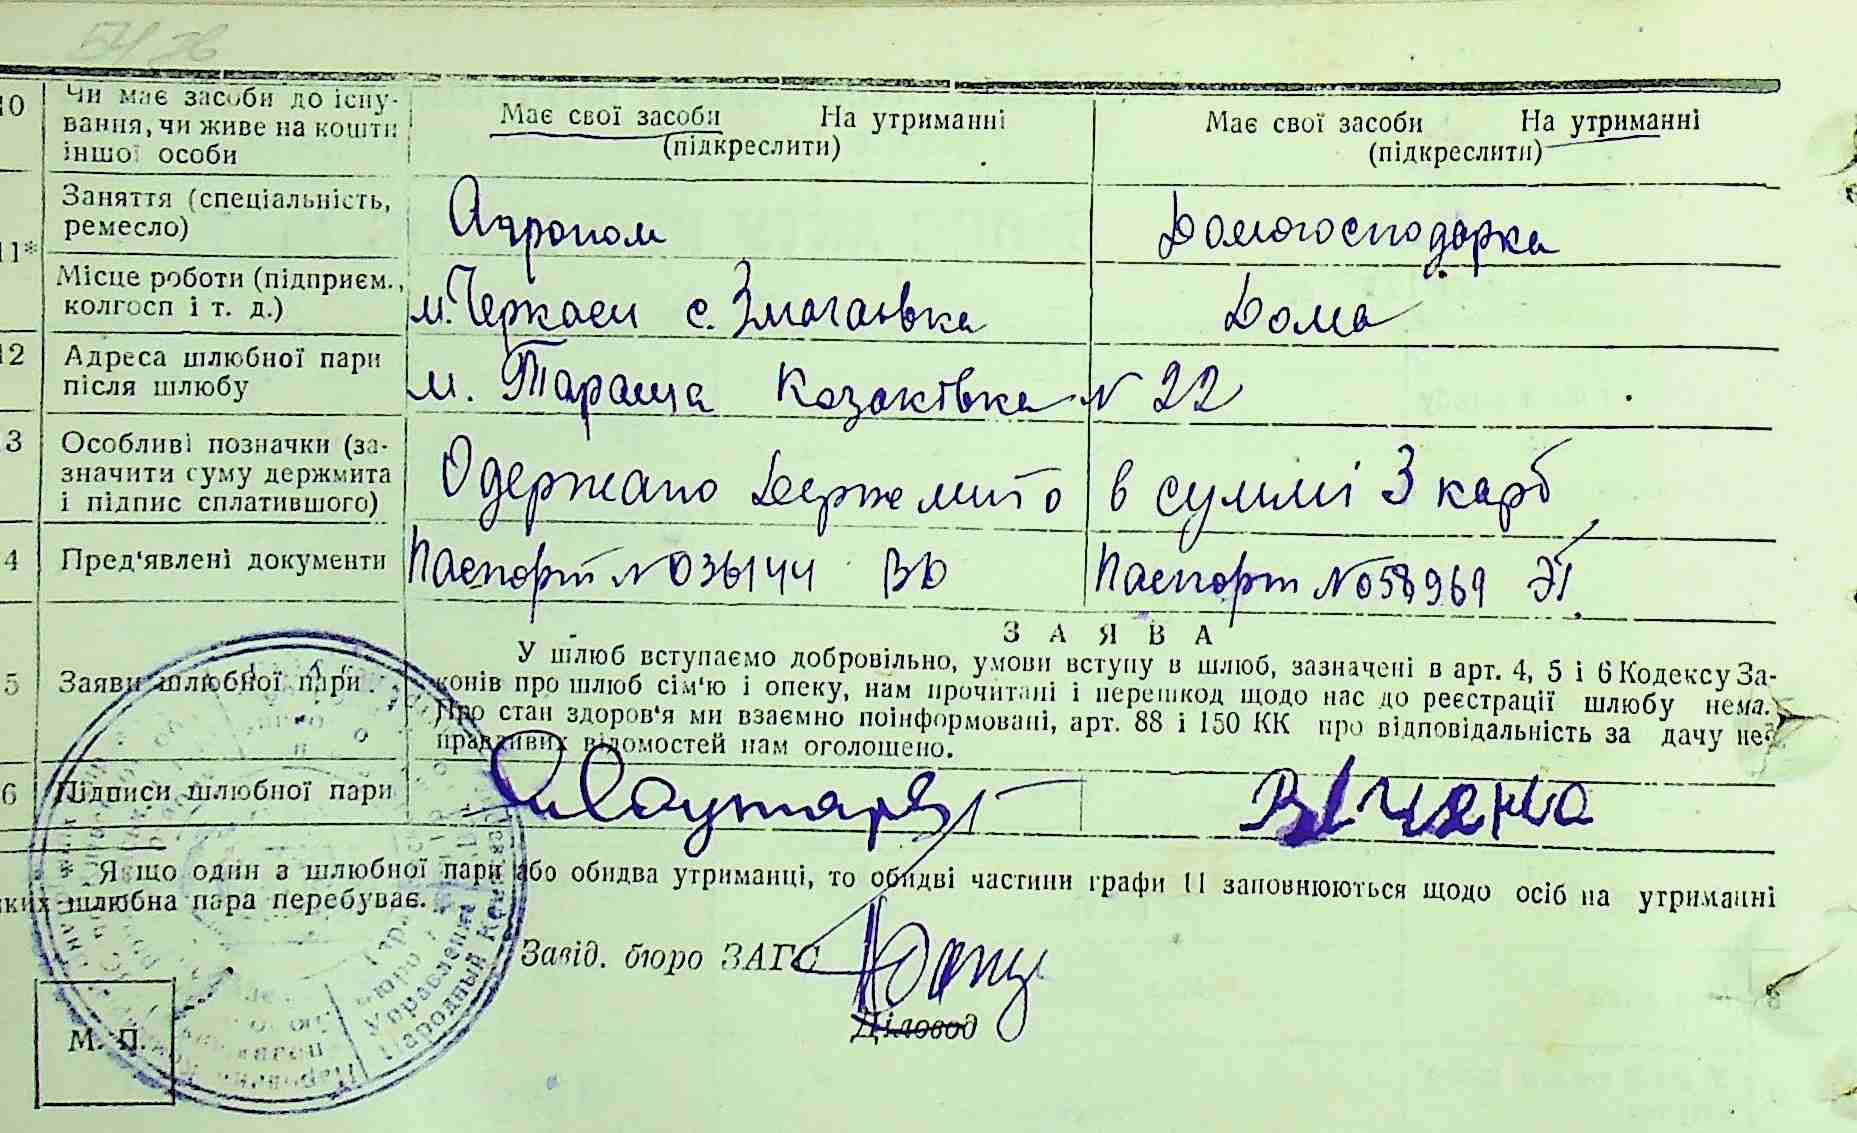 10 Чи має засоби до існу-
вання, чи живе на кошти
іншої особи
Має свої засоби На утриманні
(підкреслити)
Має свої засоби На утриманні
(підкреслити)
11*
Заняття (спеціальність,
ремесло)
Агроном
Домогосподарка
Місце роботи (підприєм.,
колгосп і т. д.)
м. Черкаси с. Змагаєвка
Дома
12 Адреса шлюбної пари
після шлюбу
м. Тараща Козаківка N 22
3 Особливі позначки (за-
значити суму держмита
і підпис сплатившого)
Одержано Держмито в суммі 3 карб
4 Пред'явлені документи
Паспорт N 036144 ВЮ
Паспорт N 058969 ЭГ
5 Заяви шлюбної пари
ЗАЯВА
У шлюб вступаємо добровільно, умови вступу в шлюб, зазначені в арт. 4, 5 і 6 Кодексу За-
конів про шлюб сім'ю і опеку, нам прочитані і перешкод щодо нас до реєстрації шлюбу нема.
Про стан здоров'я ми взаємно поінформовані, арт. 88 і 150 КК про відповідальність за дачу не-
правдивих відомостей нам оголошено.
6 Підписи шлюбної пари
Якщо один з шлюбної пари або обидва утриманці, то обидві частини графи 11 заповнюються щодо осіб на утриманні
яких шлюбна пара перебуває.
Завід. бюро ЗАГС
Діловод
М. П.
Управления
Народный